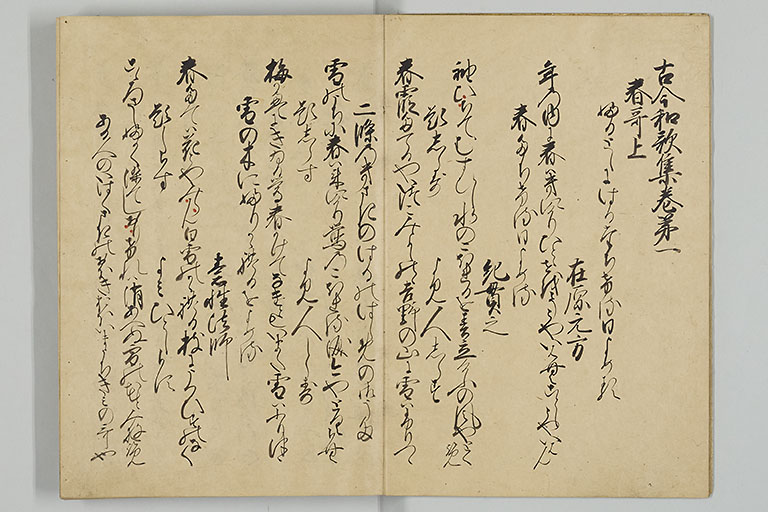 古今和歌集巻第一
春哥上
ふるとしにはるたちける日よめる
在原元方
年の内に春はきにけりひとゝせをこそとやいはんことしとやいはん
春たちける日よめる
紀貫之
袖ひちてむすひし水のこほれるを春立けふの風やとくらむ
題しらす　よみ人しらす
春霞たてるやいつこみよしのゝ吉野の山に雪はふりつゝ
二條のきさきのはるのはしめの御うた
雪の内に春は来にけり鶯のこほれる涙今やとくらむ
題しらす　よみ人しらす
梅かえにきゐる鶯春かけてなけともいまた雪はふりつゝ
雪の木にふりかゝれるをよめる
素性法師
春たては花とやみらん白雪のかゝれる枝にうくひすのなく
題しらす　よみ人しらす
心さしふかく染てしをりけれは消あへぬ雪の花とみゆらん
ある人のいはくさきのおほきおほいまうちきみの哥也